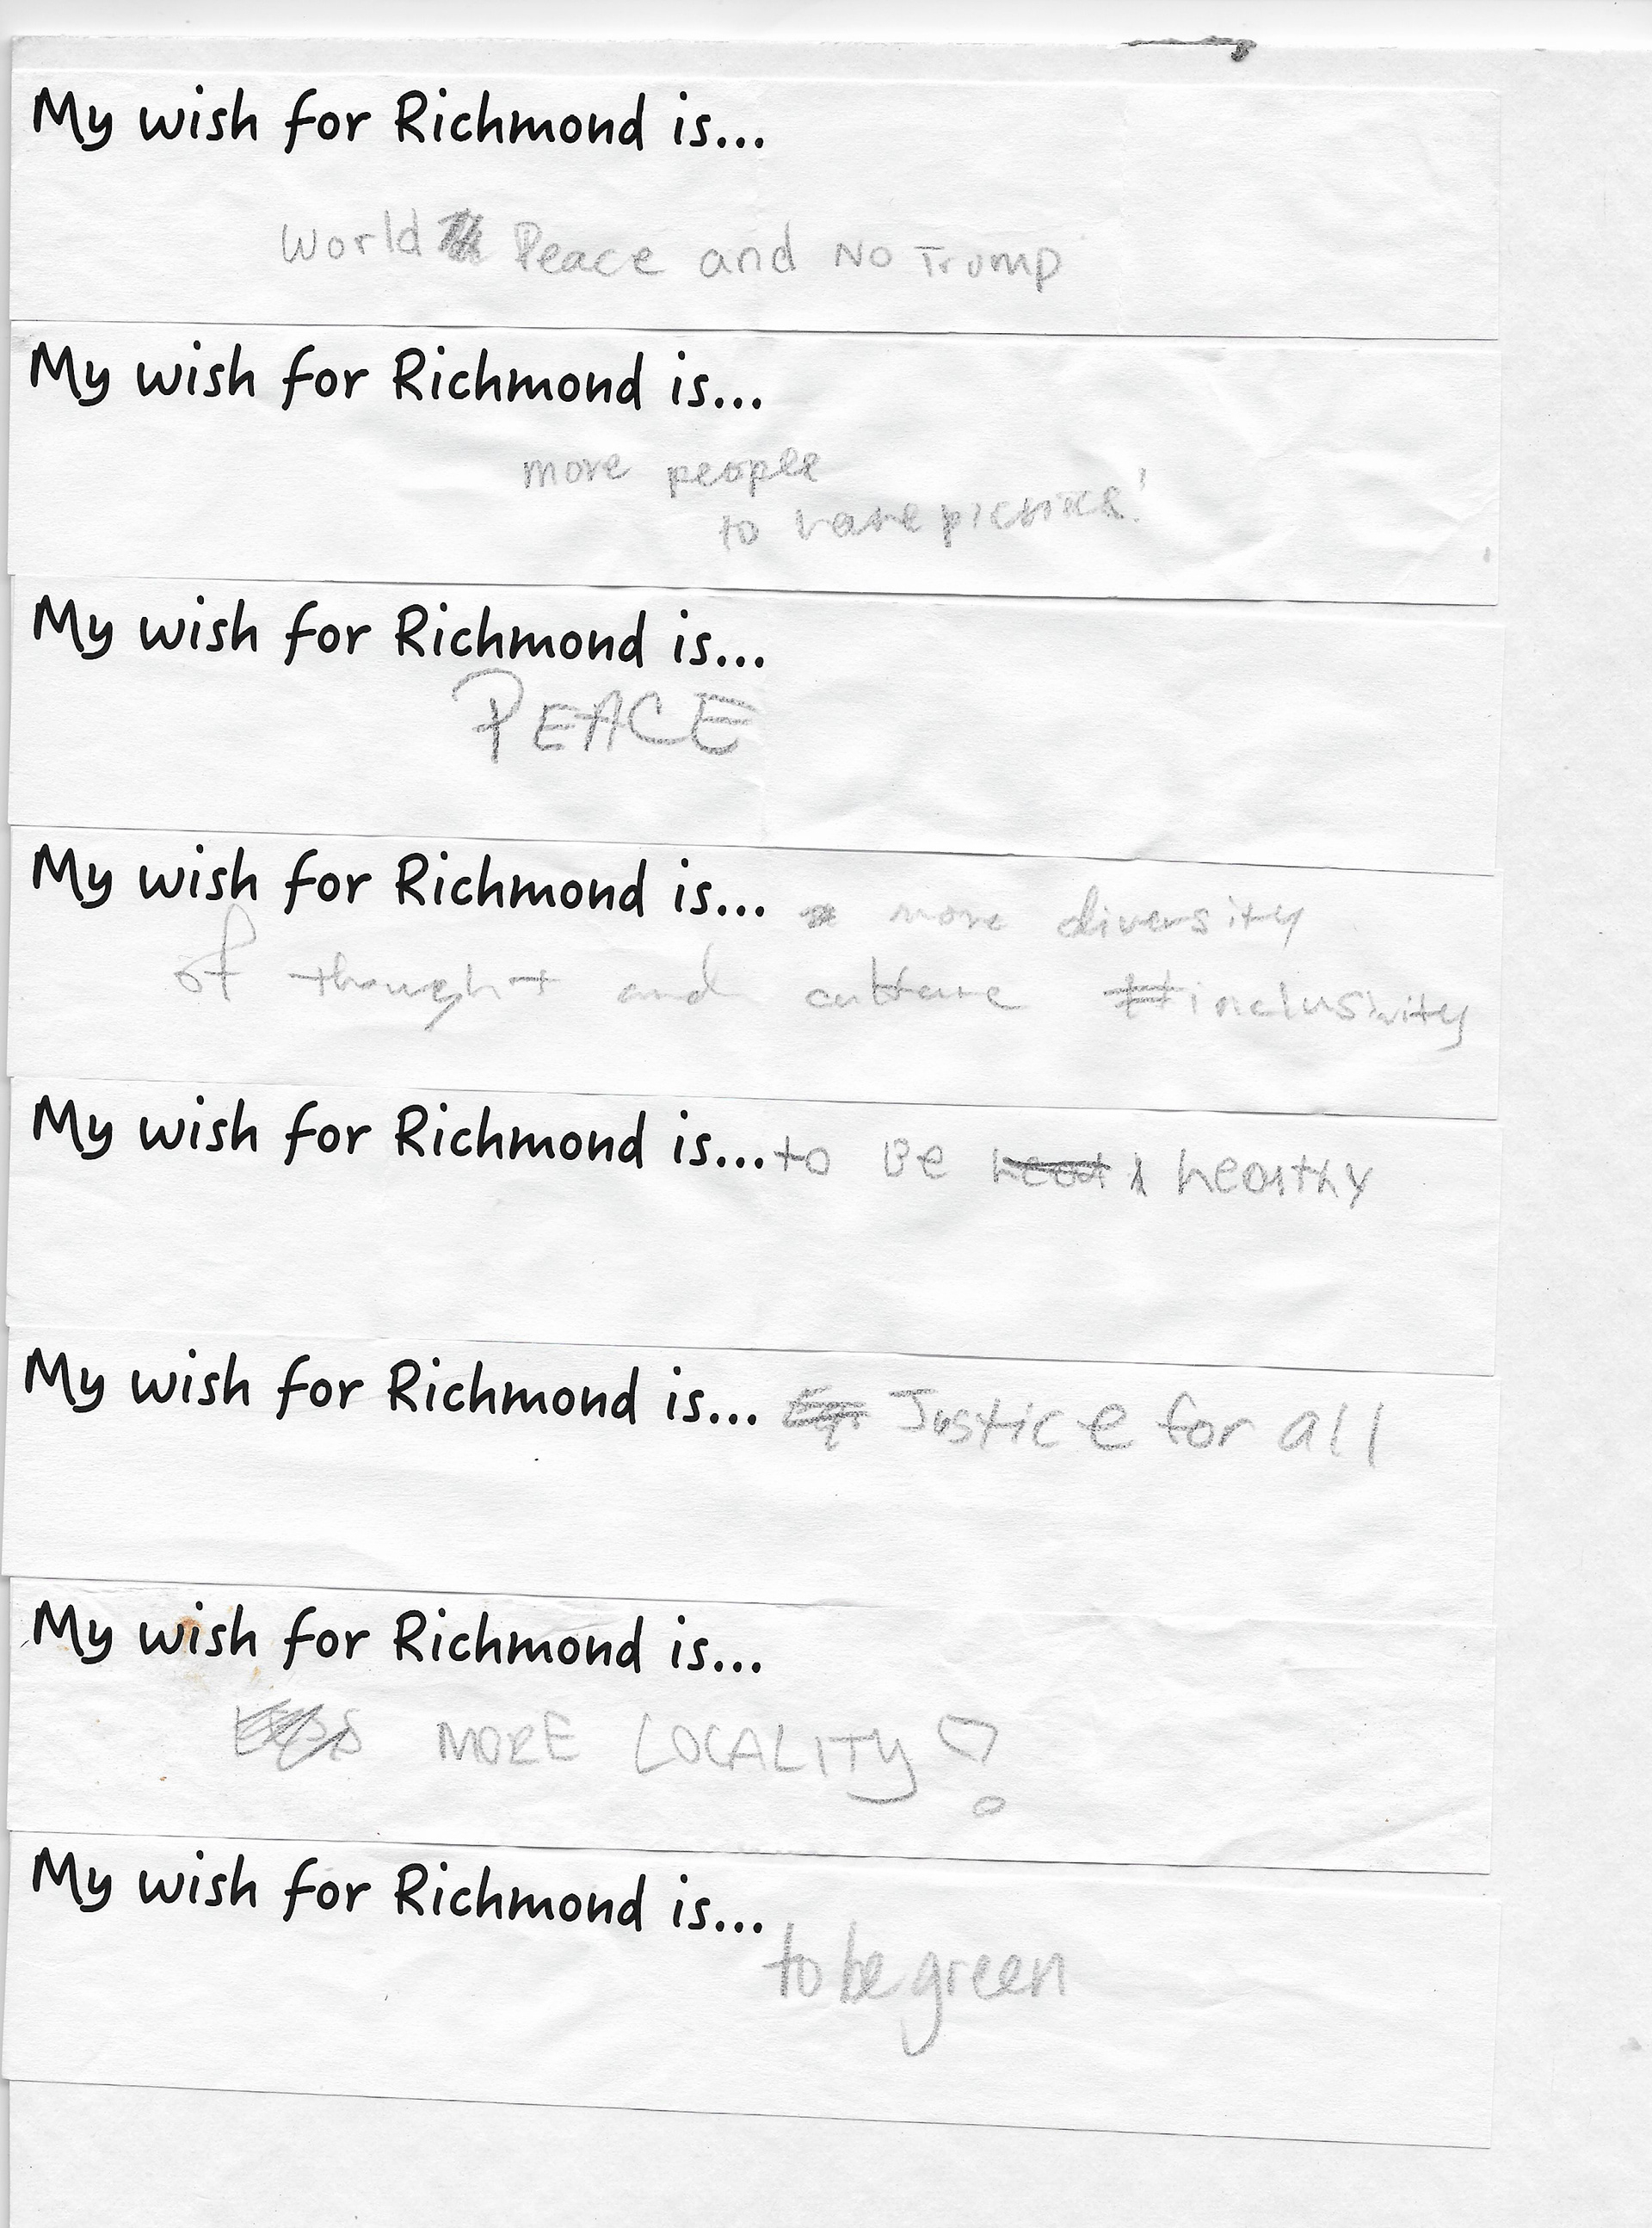 My wish for Richmond is...
World Peace and No Trump
My wish for Richmond is...
more people
to have picnics!
My wish for Richmond is...
PEACE
My wish for Richmond is... more diversity
of thought and culture #inclusivity
My wish for Richmond is... to Be healthy
My wish for Richmond is... Justice for all
My wish for Richmond is...
MORE LOCALITY!
My wish for Richmond is...
to be green